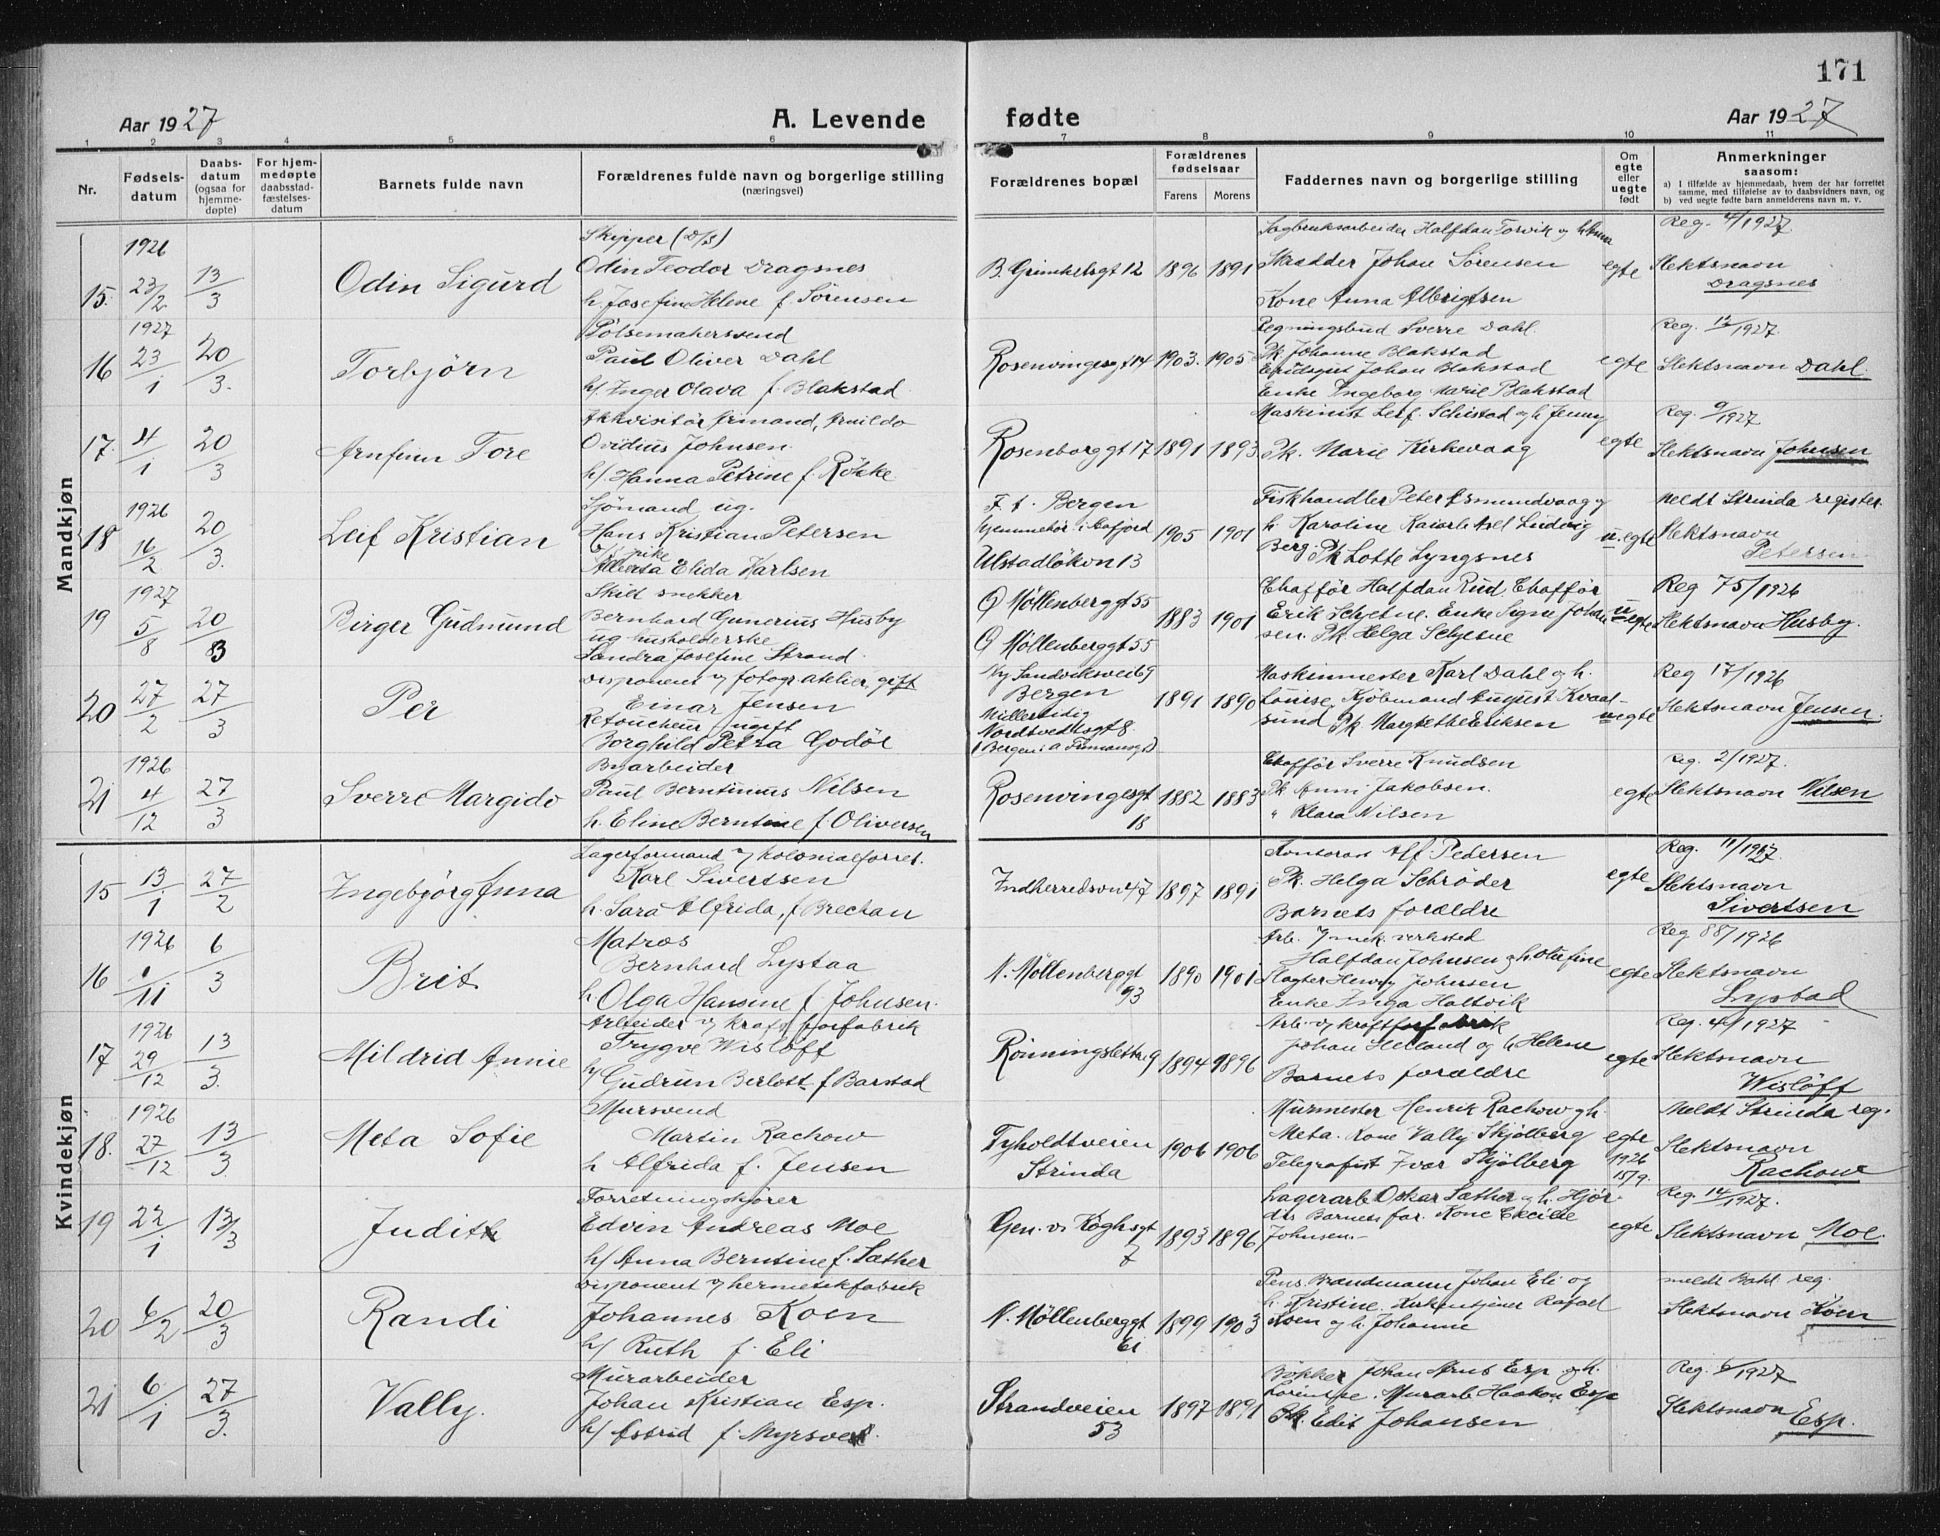 171
Aar 1927
A. Levende
fødte
Aar 1927
1 2 3 4 5 6 7 8 9 10 11
Nr.
Fødsels-
datum
Daabs-
datum
(ogsaa for
hjemme-
døpte)
For hjem-
medøpte
daabsstad-
fæstelses-
datum
Barnets fulde navn
Forældrenes fulde navn og borgerlige stilling
(næringsvei)
Forældrenes bopæl
Forældrenes
fødselsaar
Farens Morens
Faddernes navn og borgerlige stilling
Om
egte
eller
uegte
født
Anmerkninger
saasom:
a) I tilfælde av hjemmedaab, hvem der har forrettet
samme, med tilføielse av to daabsvidners navn, og
b) ved uegte fødte barn anmelderens navn m. v.
Mandkjøn
1926
15. 23/2 13/3
Odin Sigurd
Skipper (D/S)
Odin Teodor Dragsnes
h. Josefine Helene f. Sørensen
B. Grimkelsgt 12 1896 1891
Sagbruksarbeider Halfdan Torvik og h.
Skrædder Johan Sørensen
Kone Anna Albrigtsen
egte
Reg. 4/1927
Slektsnavn
Dragsnes
1927
16 23/1 20/3.
Torbjørn
Pølsemakersvend
Paul Oliver Dahl
h/ Inger Olava f. Blakstad
Rosenvingesgt 14 1903. 1905
Regningsbud Sverre Dahl.
Pk. Johanne Blakstad
Johan Blakstad
Enke Ingeborg Marie Blakstad
egte
Reg. 12/1927.
Slektsnavn Dahl.
17. 4/1 20/3
Arnfinn Tore
Akkvisitør Armand, Arnildo
Ovidius Johnsen
h/. Hanna Petrine f. Røkke
Rosenborggt 17 1891 1893
Maskinist Leif Schistad og h. Jenny
Pk. Marie Kirkevaag
egte
Reg. 9/1927
Slektsnavn Johnsen
1926
18 16/2 20/3.
Leif Kristian
Sjømand, ug.
Hans Kristian Petersen
pike
Alberta Elida Karlsen
F. t. Bergen
hjemmehør. i Aafjord
Ulstadløkvn 13
1905 1901
Fiskhandler Peter Osmundvaag og
h. Karoline Axel Ludvig
Berg. Pk Lotte Lyngsnes
u. egte
meldt Strinda register
Slektsnavn
Petersen
1927
19 5/8 20/3
Birger Gudmund
Skilt snekker
Bernhard Gunerius Husby
ug husholderske
Sandra Josefine Strand.
Ø Møllenberggt 55
Ø Møllenberggt 55
1883 1901
Chaffør Halfdan Rud Chaffør
Erik Schjetne. Enke Signe Johan
sen. Pk. Helga Schjetne
uegte
Reg 75/1926
Slektsnavn Husby.
20 27/2 27/3
Per
Disponent v/ fotogr. atelier, gift
Einar Jensen
Retoucheur ugift
Borghild Petra Godøe
Ny Sandviksvei 69
Bergen
Midlertidig
Nordtvedtsgt 8.
1891 1890
Maskinmester Karl Dahl og h.
Louise. Kjøbmand August Kvaal-
sund Pk. Margrethe Eriksen
uegte
Reg 17/1926
Slektsnavn Jensen.
1926
21 4/12 27/3
Sverre Margido
Byarbeider
Paul Berntinius Nilsen
h. Eline Berntine f. Oliversen
Rosenvingesgt
18
1882 1883
Chaffør Sverre Knudsen
Pk Anni Jakobsen.
" Klara Nilsen
egte
Reg. 2/1927.
Slektsnavn Nilsen
Kvindekjøn
15 13/1 27/2
Ingebjørg Anna
Lagerformand v/ kolonialforret.
Karl Sivertsen
h. Sara Alfrida, f. Brechan
Indherredsvn 47 1897 1891
Kontorist Alf. Pedersen
Pk. Helga Schrøder
Barnets forældre
egte
Reg. 11/1927.
Slektsnavn
Sivertsen
1926
16 1/11 6/3
Brit
Matros
Bernhard Lystaa
h Olga Hansine f. Johnsen.
N. Møllenberggt
93
1890 1901
Arb. v/ mek. verksted
Halfdan Johnsen og h. Olufine
Slagter Henry Johnsen
Enke Inga Haltvik
egte
Reg 88/1926
Slektsnavn
Lystad
1926
17 29/12 13/3.
Mildrid Annie
Arbeider v/ kraftforfabrik
Trygve Wisløff
h/ Gudrun Berlott f Barstad
Rønningsletta 9 1894 1896
Arb. v/ kraftforfabrik
Johan Helland og h. Helene
Barnets forældre
egte
Reg. 4/1927
Slektsnavn
Wisløff
1926
18. 27/12 13/3
Meta Sofie
Mursvend
Martin Rachow
h Alfrida f. Jensen
Tyholdtveien
Strinda
1906 1906
Murmester Henrik Rachow og h.
Meta. Kone Vally Skjølberg
Telegrafist Ivar Skjølberg
egte
1926
15/9.
Meldt Strinda reg.
Slektsnavn
Rachow
19 22/1 13/3
Judith
Forretningskjører
Edvin Andreas Moe
h/ Anna Berntine f. Sæther
Gen. v. Køghsgt
7
1893 1896
Lagerarb. Oskar Sæther og h. Hjør-
dis Barnets far. Kone Cecilie
Johnsen.
egte
Reg. 14/1927.
Slektsnavn Moe.
20 6/2 20/3
Randi
Disponent v/ hermetikfabrik
Johannes Koen
h/ Ruth f. Eli
N. Møllenberggt
61
1899 1903
Pens. Brandmann Johan Eli og
h. Kristine. Kirketjener Rafael
Koen og h. Johanne
meldt Bakl. reg.
Slektsnavn Koen
21 6/1 27/3.
Vally.
Murarbeider
Johan Kristian Esp.
h/ Astrid f. Myrsve
Strandveien
53
1897 1891
Bøkker Johan Arnt Esp og h.
Lorentse. Murarb Haakon Esp
Pk. Edit Johansen
Reg. 6/1927
Slektsnavn
Esp.